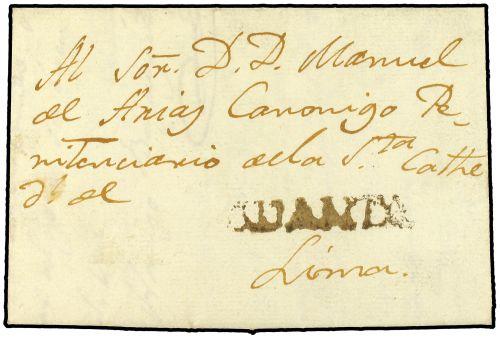 Al Sór. D. D. Manuel
de Arias Canonigo Pe-
nitenciario dela S.ta Cathe
d.l de
HUANTA
Lima.